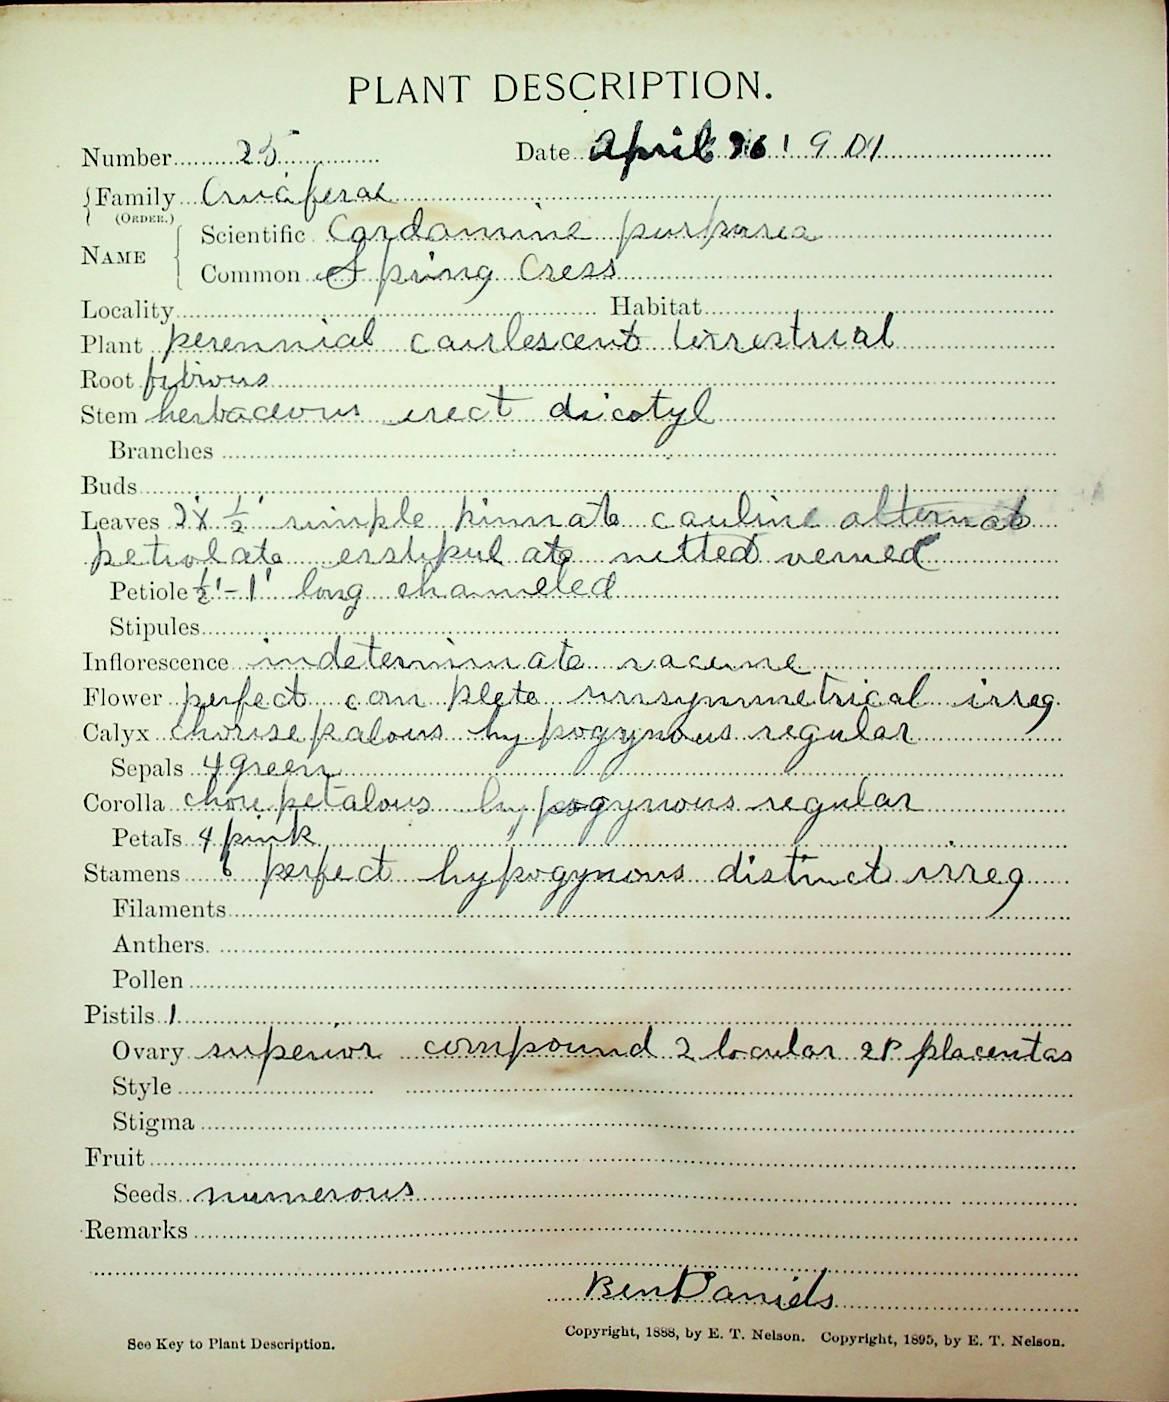 PLANT DESCRIPTION.
Number 25 Date April 1901
Family Cruciferae
(ORDER.)
NAME
Scientific Cardamine purpurea
Common Spring Cress
Locality Habitat
Plant perennial caulescent terrestrial
Root fibrous
Stem herbaceous erect dicotyl
Branches
Buds
Leaves 2' x 1/2' simple pinnate cauline alternate
petiolate exstipulate netted veined
Petiole 1/2' - 1' long channeled
Stipules
Inflorescence indeterminate raceme
Flower perfect complete unsymmetrical irreg
Calyx chorisepalous hypogynous regular
Sepals 4 green
Corolla choripetalous hypogynous regular
Petals 4 pink
Stamens 6 perfect hypogynous distinct irreg
Filaments
Anthers.
Pollen
Pistils 1
Ovary superior compound 2 locular 2P placentas
Style
Stigma
Fruit
Seeds numerous
Remarks
Ben Daniels
See Key to Plant Description.
Copyright, 1888, by E. T. Nelson. Copyright, 1895, by E. T. Nelson.